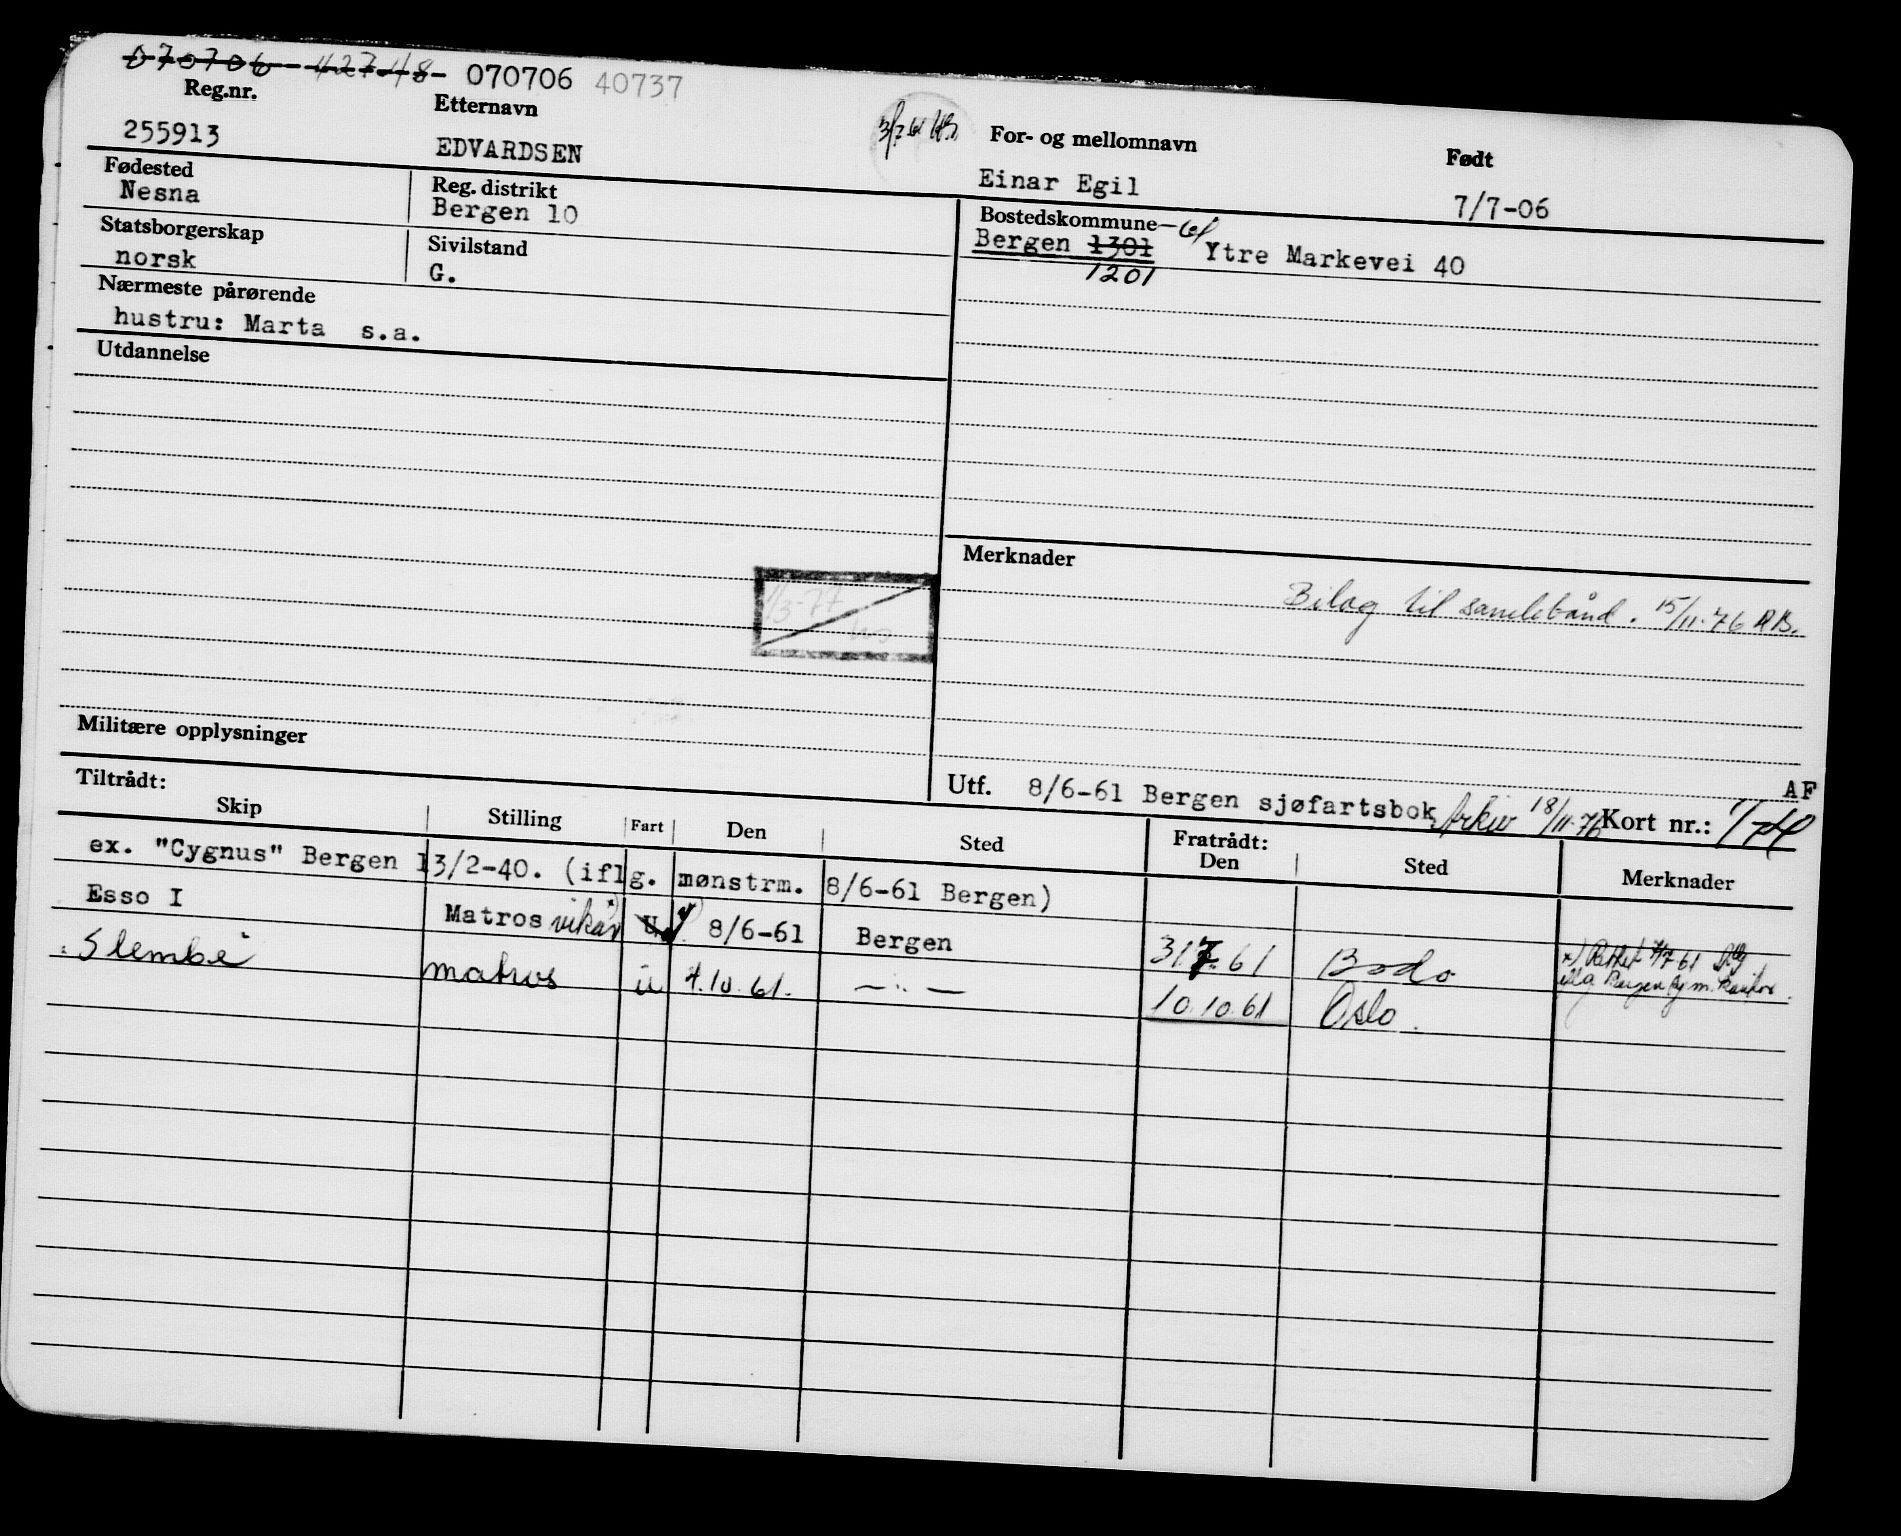 070706 42748 070706 40737
Reg.nr. Etternavn For- og mellomnavn Født
255913 EDVARDSEN Einar Egil 7/7-06
Fødested Reg. distrikt Bostedskommune
Nesna Bergen 10 Bergen 1301 Ytre Markevei 40
1201
Statsborgerskap Sivilstand
norsk G.
Nærmeste pårørende
hustru: Marta s.a.
Utdannelse
Merknader
Bilag til samlebånd. 15/11-76
1/3-77
Militære opplysninger
AF
Utf. 8/6-61 Bergen sjøfartsbok Arkiv 18/11-76 Kort nr.: 1/
Tiltrådt: Fratrådt:
Skip Stilling Fart Den Sted Den Sted Merknader
ex. "Cygnus" Bergen 13/2-40. (iflg. mønstrm. 8/6-61 Bergen)
Esso I Matros vikar U 8/6-61 Bergen 31.7.61 Bodo x) Rettet 4/7 61
Slembe matros u 7.10.61. — " — 10.10.61 Oslo. iflg Bergen